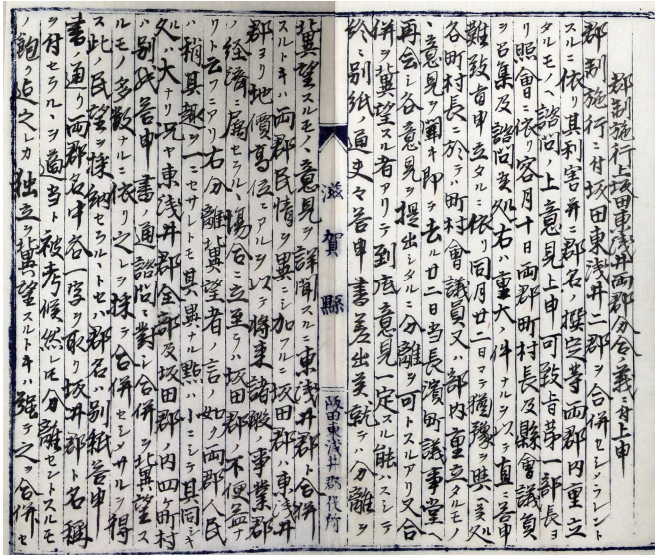 郡制施行上坂田東浅井両郡分合ノ義ニ付上申
郡制施行ニ付坂田東浅井二郡ヲ合併セシメラレント
スルニ依リ其利害并ニ郡名ノ撰定等両郡内重立
タルモノヘ諮問ノ上意見上申可致旨第一部長ヨ
リ照會ニ依リ客月十日両郡町村長及縣會議員
ヲ召集及諮問候処右ハ重大ノ件ナルヲ以テ直ニ答申
難致旨申立タルニ依リ同月廿二日マテ猶豫ヲ與ヘ候処
各町村長ニ於テハ町村會議員又ハ部内重立タルモノ
ノ意見ヲ聞キ即チ去ル廿二日当長濱町議事堂ヘ
再会シ各意見ヲ提出シタルニ分離ヲ可トスルアリ又合
併ヲ冀望スル者アリテ到底意見一定スル能ハスシテ
終ニ別紙ノ通夫々答申書差出候就テハ分離ヲ
滋賀縣
阪田東浅井郡役所
冀望スルモノヽ意見ヲ詳聞スルニ東浅井郡ト合併
スルトキハ両郡民情ヲ異ニシ加フルニ坂田郡ハ東浅井
郡ヨリ地價高位ニアルヲ以テ将来諸般ノ事業郡
ノ経済ニ属セラルヽ場合ニ立至ラハ坂田郡ノ不便益ナ
リト云フニアリ右分離冀望者ノ言ノ如ク両郡人民
ハ稍其趣ヲ一ニセサルモ其異ナル點ハ小ニシテ其同シキ
処ハ大ナリ況ヤ東浅井郡全部及坂田郡ノ内四ヶ町村
ハ別紙答申書ノ通諮問ニ對シ合併ヲ冀望ス
ルモノ多数ナルニ依リ之レヲ採テ合併セシメサルヲ得
ス此ノ民望ヲ採納セラルヽトセハ郡名ハ別紙答申
書ノ通リ両郡名中各一字ヲ取リ坂井郡ト名稱
ヲ付セラルヽヲ適当ト被考候然レモ分離セントスルモ
ノ飽マ迄之レカ独立ヲ冀望スルトキハ強テ之ヲ合併セ